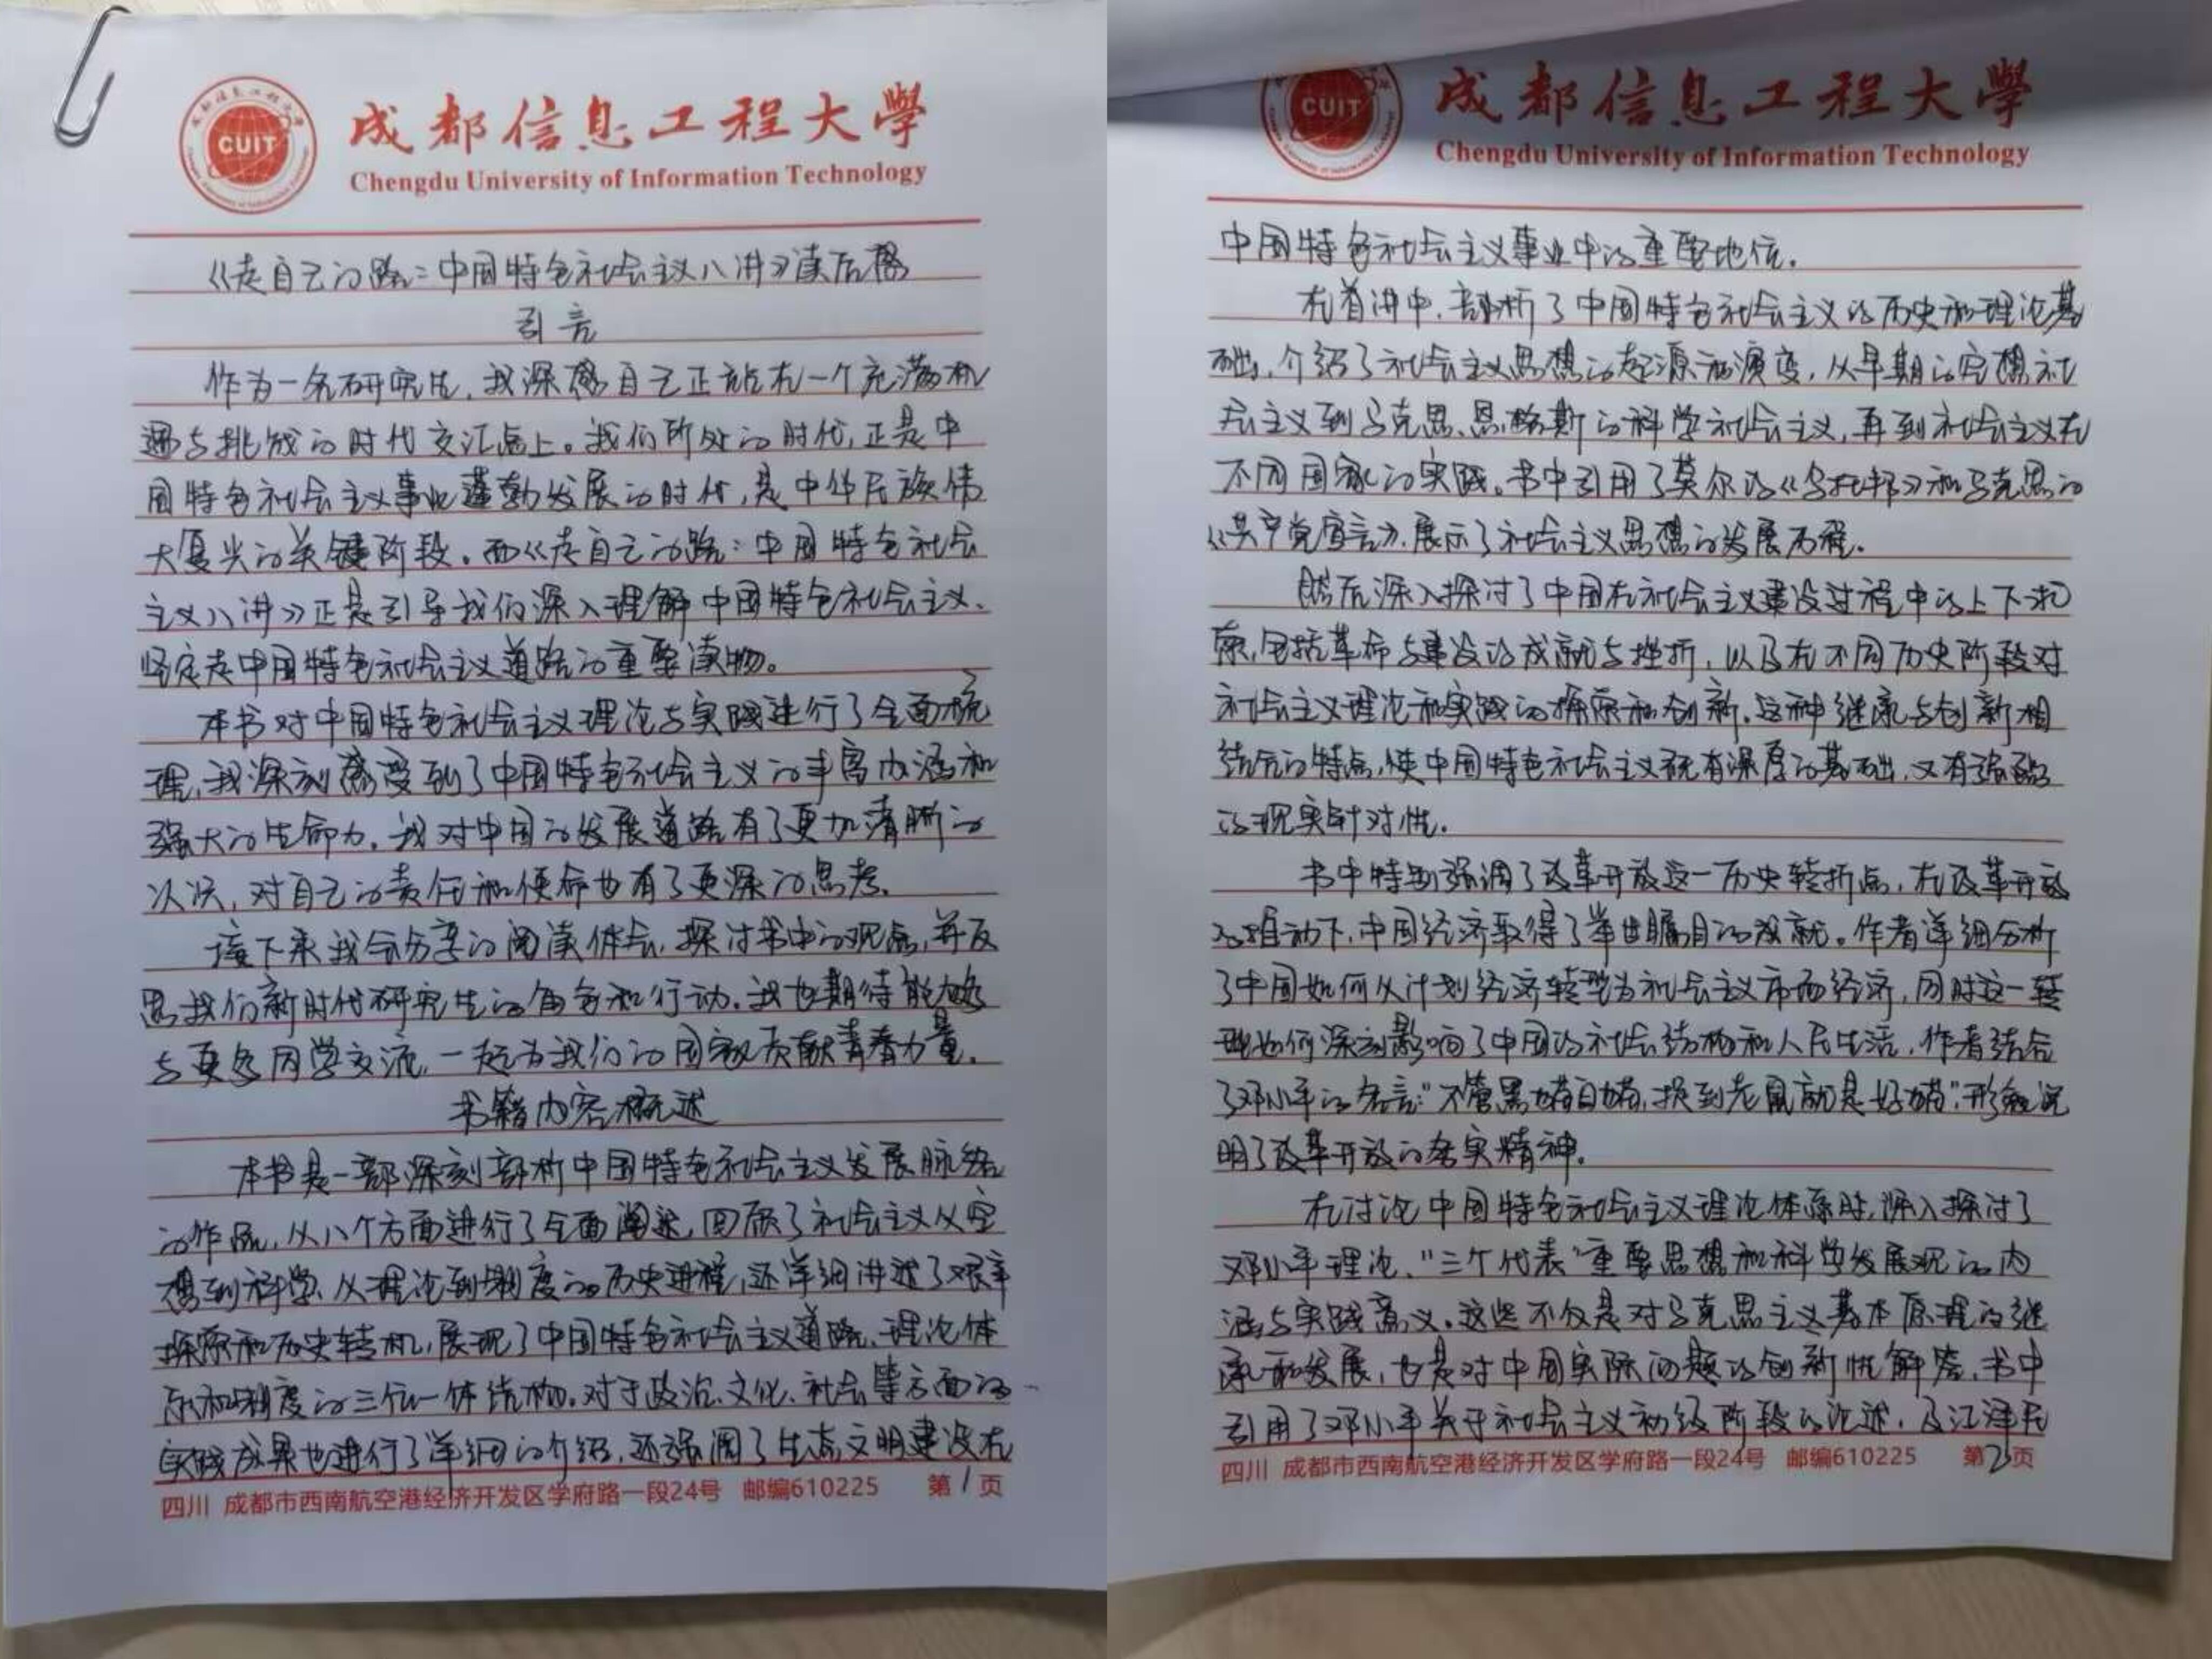 CUIT
成都信息工程大學
Chengdu University of Information Technology
《走自己的路：中国特色社会主义八讲》读后感
引言
作为一名研究生，我深感自己正站在一个充满机
遇与挑战的时代交汇点上。我们所处的时代，正是中
国特色社会主义事业蓬勃发展的时代，是中华民族伟
大复兴的关键阶段。而《走自己的路：中国特色社会
主义八讲》正是引导我们深入理解中国特色社会主义、
坚定走中国特色社会主义道路的重要读物。
本书对中国特色社会主义理论与实践进行了全面梳
理，我深刻感受到了中国特色社会主义的丰富内涵和
强大的生命力。我对中国的发展道路有了更加清晰的
认识，对自己的责任和使命也有了更深的思考。
接下来我会分享的阅读体会，探讨书中的观点，并反
思我们新时代研究生的角色和行动。我也期待能够
与更多同学交流，一起为我们的国家贡献青春力量。
书籍内容概述
本书是一部深刻剖析中国特色社会主义发展脉络
的作品，从八个方面进行了全面阐述，回顾了社会主义从空
想到科学、从理论到制度的历史进程，还详细讲述了艰辛
探索和历史转机，展现了中国特色社会主义道路、理论体
系和制度的三位一体结构。对于政治、文化、社会等方面的
实践成果也进行了详细的介绍，还强调了生态文明建设在
四川 成都市西南航空港经济开发区学府路一段24号 邮编610225 第1页
CUIT
成都信息工程大學
Chengdu University of Information Technology
中国特色社会主义事业中的重要地位。
在首讲中，剖析了中国特色社会主义的历史和理论基
础，介绍了社会主义思想的起源和演变，从早期的空想社
会主义到马克思、恩格斯的科学社会主义，再到社会主义在
不同国家的实践。书中引用了莫尔的《乌托邦》和马克思的
《共产党宣言》，展示了社会主义思想的发展历程。
然后深入探讨了中国在社会主义建设过程中的上下求
索，包括革命与建设的成就与挫折，以及在不同历史阶段对
社会主义理论和实践的探索和创新。这种继承与创新相
结合的特点，使中国特色社会主义既有深厚的基础，又有强烈
的现实针对性。
书中特别强调了改革开放这一历史转折点，在改革开放
的推动下，中国经济取得了举世瞩目的成就。作者详细分析
了中国如何从计划经济转型为社会主义市场经济，同时这一转
型如何深刻影响了中国的社会结构和人民生活，作者结合
了邓小平的名言："不管黑猫白猫，捉到老鼠就是好猫"，形象说
明了改革开放的务实精神。
在讨论中国特色社会主义理论体系时，深入探讨了
邓小平理论、"三个代表"重要思想和科学发展观的内
涵与实践意义。这些不仅是对马克思主义基本原理的继
承和发展，也是对中国实际问题的创新性解答。书中
引用了邓小平关于社会主义初级阶段的论述，及江泽民
四川 成都市西南航空港经济开发区学府路一段24号 邮编610225 第2页